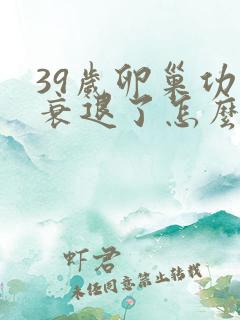 39歲卵巢功
衰退了怎麼
虾君
未经同意禁止转载